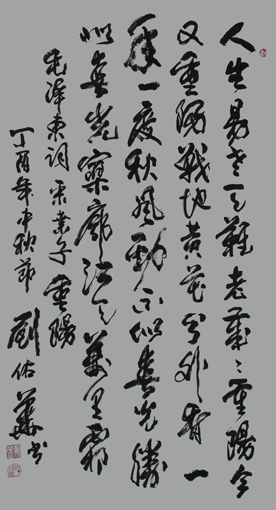 人生易老天難老歲〻重陽今
又重陽戰地黃花分外香一
年一度秋風勁不似春光勝
似春光寥廓江天萬里霜
毛澤東詞采桑子重陽
丁酉年中秋節劉佑華书